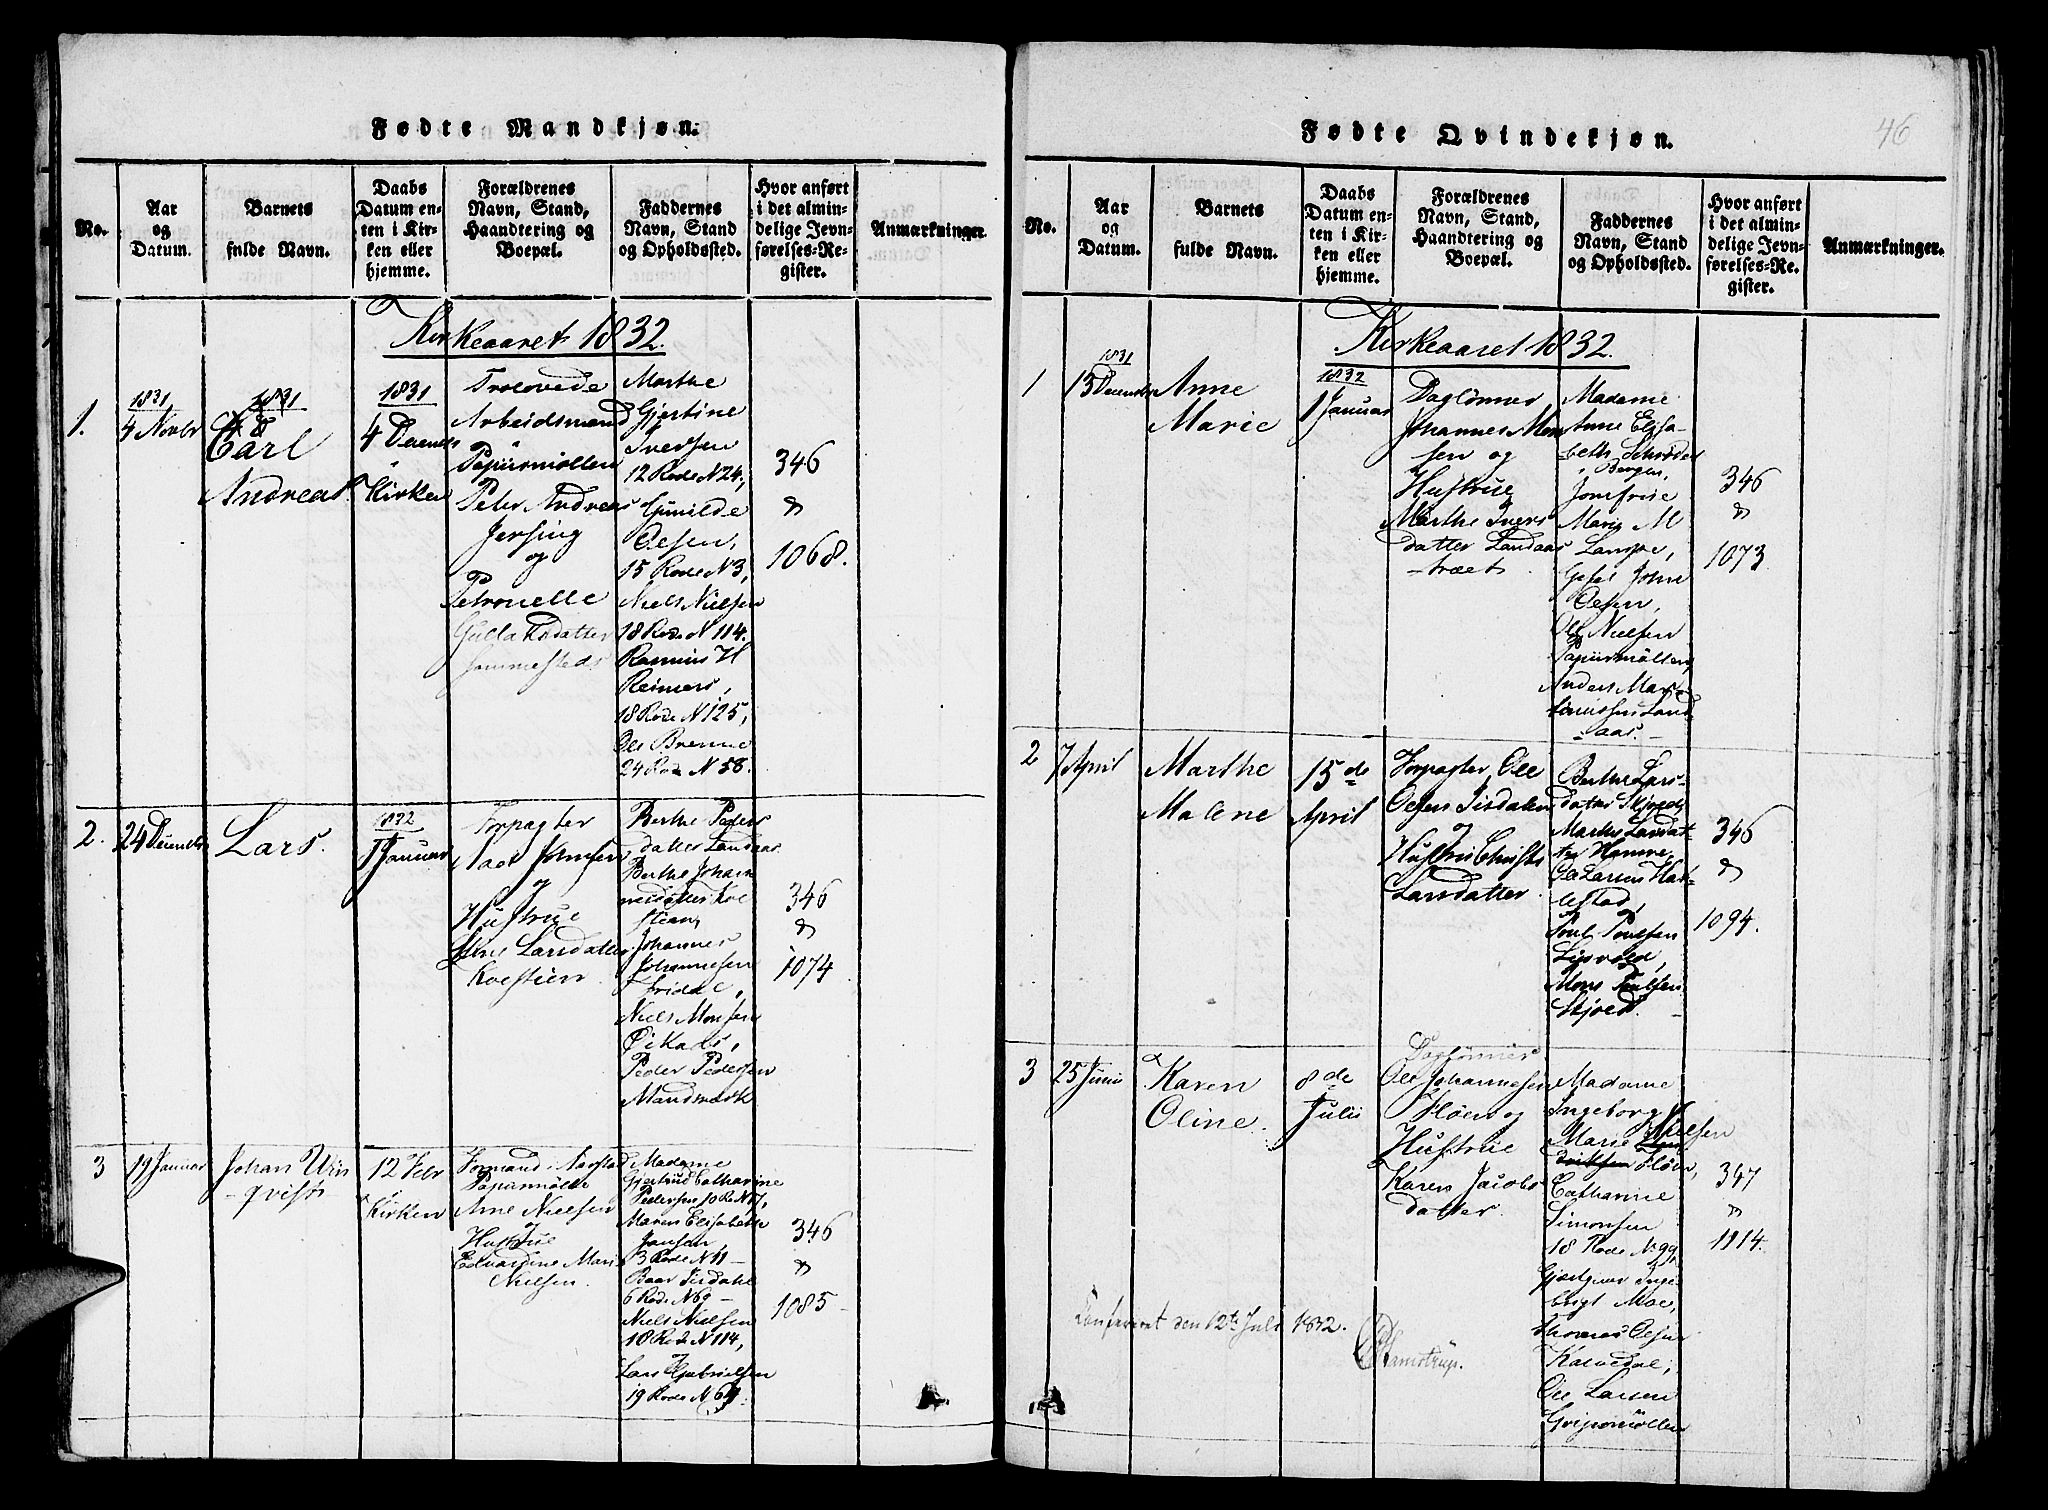 Fødte Mandkjøn.
No.
Aar
og
Datum.
Barnets
fulde Navn.
Daabs
Datum en-
ten i Kir-
ken eller
hjemme.
Forældrenes
Navn, Stand,
Haandtering og
Boepæl.
Faddernes
Navn, Stand
og Opholdssted.
Hvor anført
i det almin-
delige Jevn-
førelses-Re-
gister.
Anmærkninger.
Kirkeaaret 1832.
1.
1831
4 Novbr
1831
Carl
Andreas
1831
4 Decembr
i
Kirken
Trolovede
Arbeidsmand
Papiirmøllen
Peter Andreas
Jersing
og
Petronelle
Gullaksdatter
Sommesteds
Marthe
Gjertine
Iversen
12 Rode N 24,
Gunilde
Olsen,
15 Rode N 3,
Niels Nielsen
18 Rode N 114.
Rasmus H
Reimers,
18 Rode N 125,
Ole Brenne
24 Rode N 58.
346
&
1068.
2.
24 Decembr
Lars.
1832
1 Januar
Forpagter
Johnsen
og
Hustrue
Larsdatter
Kolstien
Berthe Peders
datter Landaas
Berthe Johan
nesdatter Kol
stien,
Johannes
Johannesen
Fridal,
Niels Monsen
Peder Pedersen
346
&
1074
3
19 Januar
Johan Win
-qvist
12 Febr
i
Kirken
Formand i
Papiirmølle
Arne Nielsen
og
Hustrue
Edvardine Mari
Nielsen.
Madame
Gjertrud Catharine
Pedersen 10 Ro N 17,
Maren Elisabethe
Jansen,
3 Rode N 11-
Baar Tisdahl
6 Rode N 69-
Niels Nielsen
18 Rode N 114,
Lars Gabrielsen
19 Rode N 69.
346
&
1085-
Fødte Qvindekjøn.
46
No.
Aar
og
Datum.
Barnets
fulde Navn.
Daabs
Datum en-
ten i Kir-
ken eller
hjemme.
Forældrenes
Navn, Stand,
Haandtering og
Boepæl.
Faddernes
Navn, Stand
og Opholdssted.
Hvor anført
i det almin-
delige Jevn-
førelses-Re-
gister.
Anmærkninger.
Kirkeaaret 1832.
1
1831
13 Decembr
Anne
Marie
1832
1 Januar
Daglönner
Johannes Mon
sen og
Hustrue
Marthe Ivers
datter Landaas
-træet
Madame
Anne Elisa-
beth Schrøder
i Bergen,
Jomfrue
Marie M
John
Olsen,
Ole Nielsen
Papiirmøllen,
Anders Mar
tinussen Land
-aas.-
346
&
1073
2
7 April
Marthe
Malene
15de
April
Forpagter Ole
Olsen Tisdalen
og
Hustrue Christi
Larsdatter
Berthe Lars-
datter Skjold,
Marthe Larsdat-
ter Hamre,
Ole Larsen Hau-
kestad,
Poul Poulsen
Mons Poulsen
Skjold.
346
&
1094.
3
25 Junii
Karen
Oline.
8de
Julii
Daglönner
Ole Johannesen
Fløen og
Hustrue
Karen Jacobs
datter.
Madame
Ingeborg
Marie Nielsen
Fløen,
Catharine
Simonsen
18 Rode N 99,
Gjæstgiver Inge-
brigt Moe,
Thomas Olsen
Kalvedal,
Ole Larsen
347
&
1114.
Confereret den 12te Juli 1832.